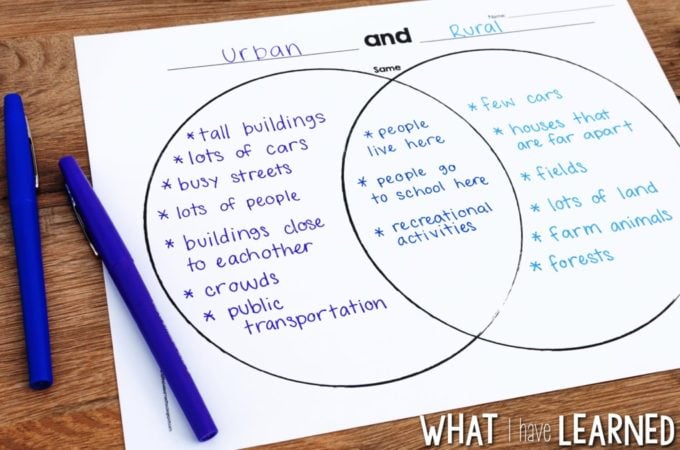 Name
Urban and Rural
Same
* tall buildings
* lots of cars
* busy streets
* lots of people
* buildings close
to eachother
* crowds
* public
transportation
* people
live here
* people go
to school here
* recreational
activities
* few cars
* houses that
are far apart
* fields
* lots of land
* farm animals
* forests
WHAT I have LEARNED